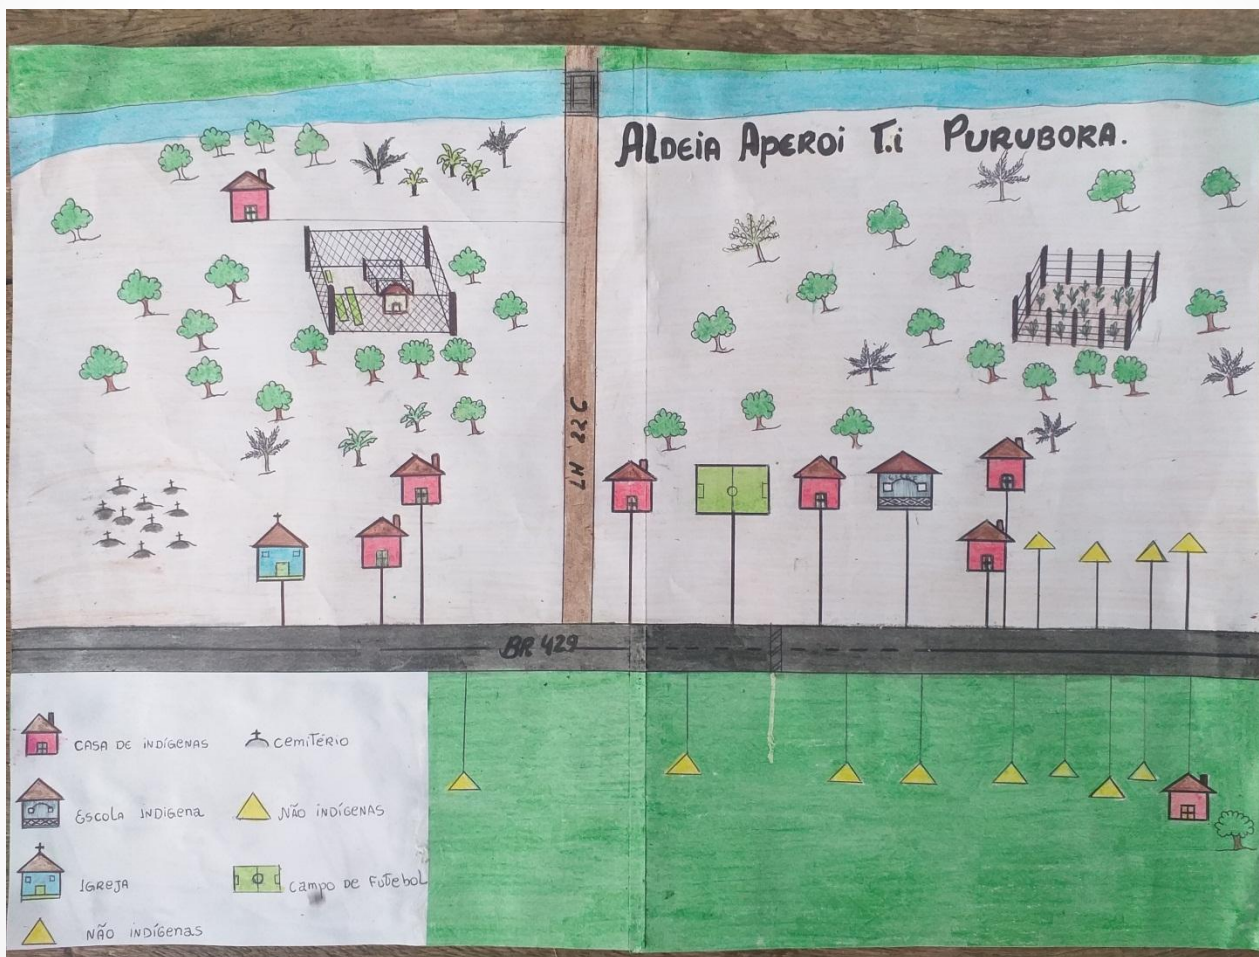 ALDEIA APEROI T.i PURUBORA.
LH 22C
BR 429
CASA DE INDÍGENAS
CEMITÉRIO
ESCOLA INDÍGENA
NÃO INDÍGENAS
IGREJA
CAMPO DE FUTEBOL
NÃO INDÍGENAS